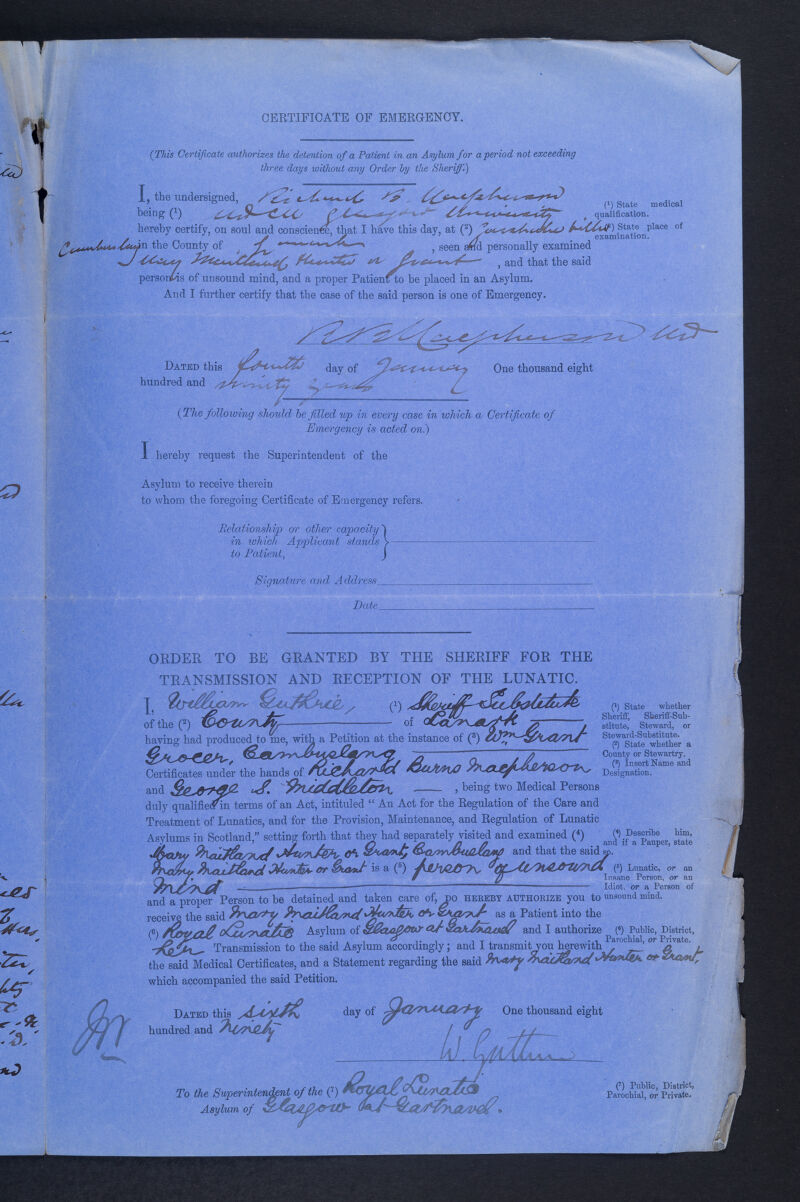 CERTIFICATE OF EMERGENCY.
(This Certificate authorizes the detention of a Patient in an Asylum for a period not exceeding
three days without any Order by the Sheriff.)
I, the undersigned, Richard B. Macpherson
(¹) State medical
qualification.
being (¹) MD CM Glasgow University
hereby certify, on soul and conscience, that I have this day, at (²)
(²) State place of
examination.
Cambuslang in the County of Lanark, seen and personally examined
Mary Maitland Hunter or Grant, and that the said
person is of unsound mind, and a proper Patient to be placed in an Asylum.
And I further certify that the case of the said person is one of Emergency.
R B Macpherson MD
DATED this fourth day of January One thousand eight
hundred and ninety years
(The following should be filled up in every case in which a Certificate of
Emergency is acted on.)
I hereby request the Superintendent of the
Asylum to receive therein
to whom the foregoing Certificate of Emergency refers.
Relationship or other capacity
in which Applicant stands
to Patient,
Signature and Address
Date
ORDER TO BE GRANTED BY THE SHERIFF FOR THE
TRANSMISSION AND RECEPTION OF THE LUNATIC.
I, William Guthrie, (¹) Sheriff Substitute
of the (²) County of Lanark
having had produced to me, with a Petition at the instance of (³) Wm Grant
Grocer, Cambuslang
Certificates under the hands of Richard Burns Macpherson
and George S. Middleton, being two Medical Persons
duly qualified in terms of an Act, intituled "An Act for the Regulation of the Care and
Treatment of Lunatics, and for the Provision, Maintenance, and Regulation of Lunatic
Asylums in Scotland," setting forth that they had separately visited and examined (⁴)
Mary Maitland Hunter or Grant, Cambuslang and that the said
Mary Maitland Hunter or Grant is a (⁵) person of unsound
mind
and a proper Person to be detained and taken care of, DO HEREBY AUTHORIZE you to
receive the said Mary Maitland Hunter or Grant as a Patient into the
(⁶) Royal Lunatic Asylum of Glasgow at Gartnavel and I authorize
her Transmission to the said Asylum accordingly; and I transmit you herewith
the said Medical Certificates, and a Statement regarding the said Mary Maitland Hunter or Grant,
which accompanied the said Petition.
(¹) State whether
Sheriff, Sheriff-Sub-
stitute, Steward, or
Steward-Substitute.
(²) State whether a
County or Stewartry.
(³) Insert Name and
Designation.
(⁴) Describe him,
and if a Pauper, state
so.
(⁵) Lunatic, or an
Insane Person, or an
Idiot, or a Person of
unsound mind.
(⁶) Public, District,
Parochial, or Private.
DATED this sixth day of January One thousand eight
hundred and Ninety
W. Guthrie
To the Superintendent of the (⁷) Royal Lunatic
Asylum of Glasgow at Gartnavel.
(⁷) Public, District,
Parochial, or Private.